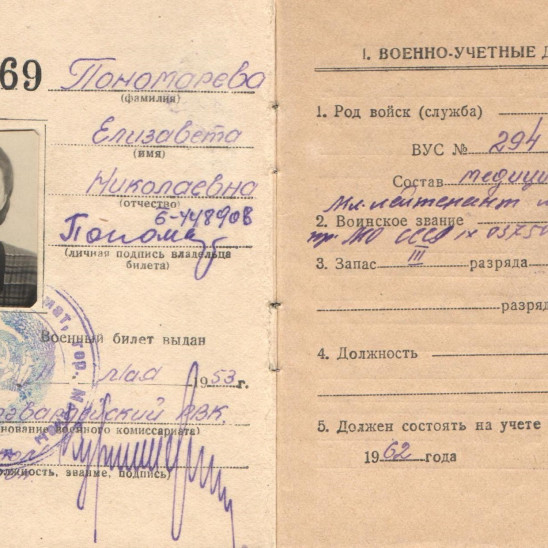 69 Пономарева
(фамилия)
Елизавета
(имя)
Николаевна
(отчество)
Б-448908
Понома
(личная подпись владельца
билета)
Военный билет выдан
мая 1953 г.
РВК
нование военного комиссариата)
звание, подпись)
I. ВОЕННО-УЧЕТНЫЕ Д
1. Род войск (служба)
ВУС № 294
Состав медици
Мл. лейтенант
2. Воинское звание
пр. МО СССР
3. Запас III разряда
разряд
4. Должность
5. Должен состоять на учете
1962 года